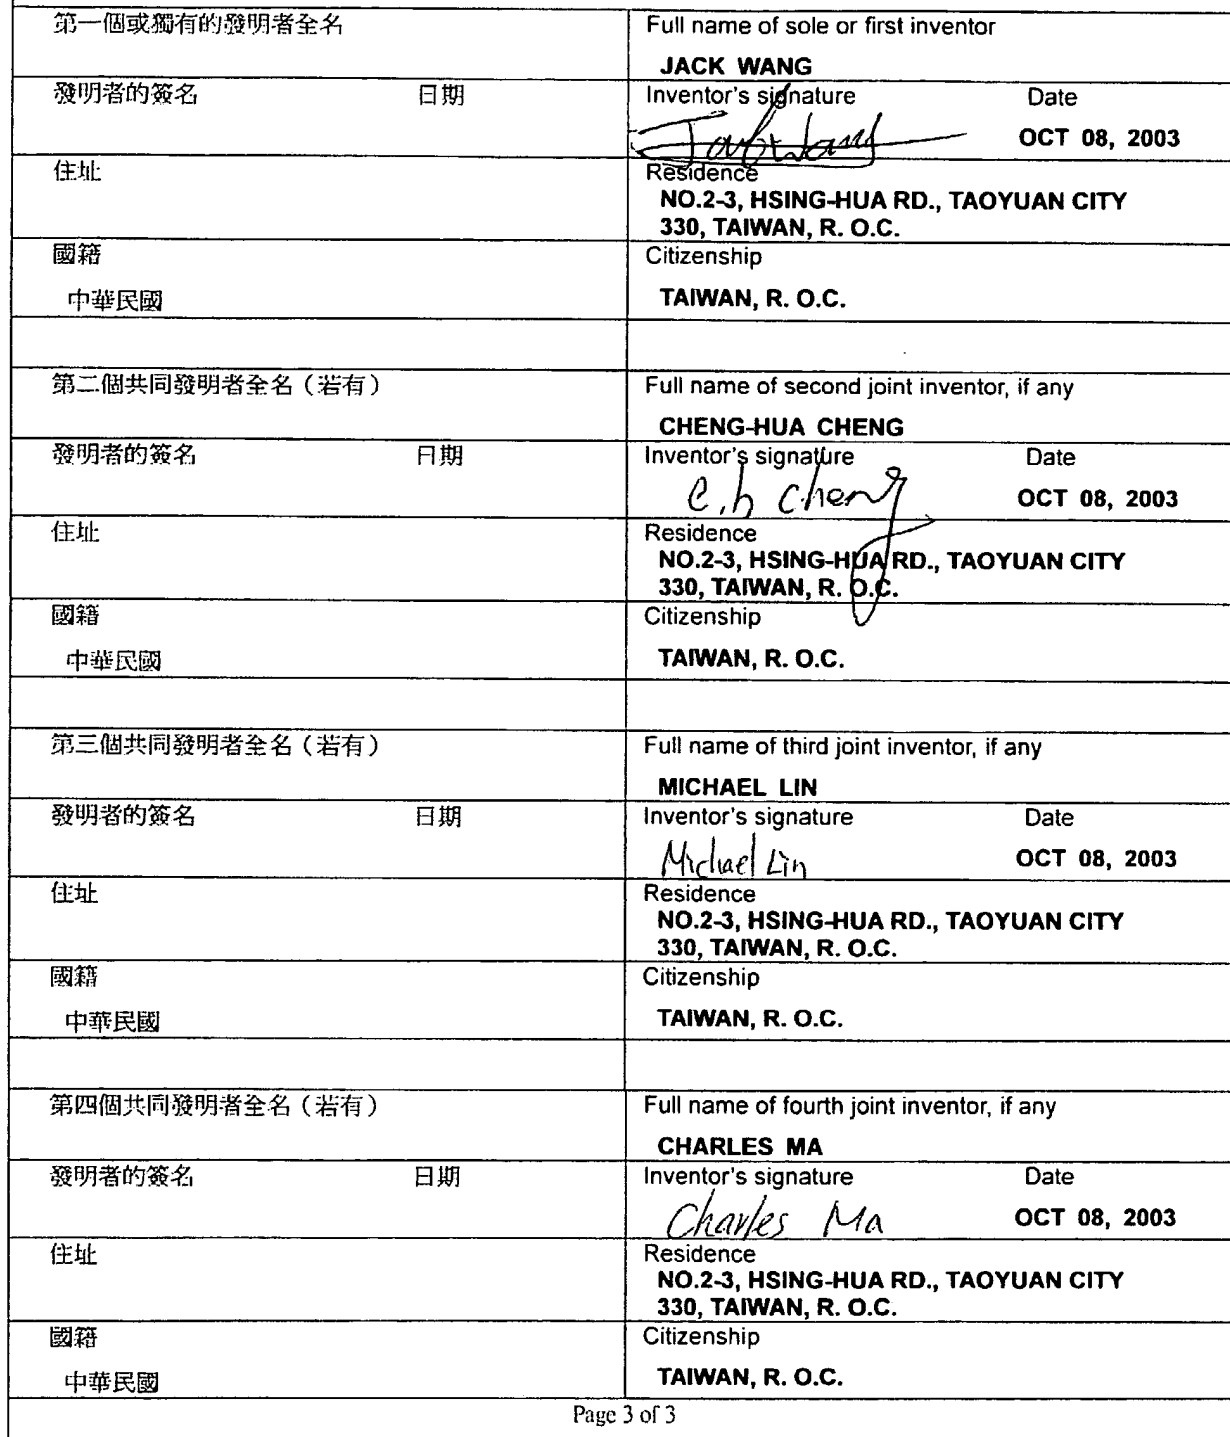 第一個或獨有的發明者全名
Full name of sole or first inventor
JACK WANG
發明者的簽名 日期
Inventor's signature Date
Jack Wang
OCT 08, 2003
住址
Residence
NO.2-3, HSING-HUA RD., TAOYUAN CITY
330, TAIWAN, R. O.C.
國籍
Citizenship
中華民國
TAIWAN, R. O.C.
第二個共同發明者全名（若有）
Full name of second joint inventor, if any
CHENG-HUA CHENG
發明者的簽名 日期
Inventor's signature Date
C.h cheng
OCT 08, 2003
住址
Residence
NO.2-3, HSING-HUA RD., TAOYUAN CITY
330, TAIWAN, R. O.C.
國籍
Citizenship
中華民國
TAIWAN, R. O.C.
第三個共同發明者全名（若有）
Full name of third joint inventor, if any
MICHAEL LIN
發明者的簽名 日期
Inventor's signature Date
Michael Lin
OCT 08, 2003
住址
Residence
NO.2-3, HSING-HUA RD., TAOYUAN CITY
330, TAIWAN, R. O.C.
國籍
Citizenship
中華民國
TAIWAN, R. O.C.
第四個共同發明者全名（若有）
Full name of fourth joint inventor, if any
CHARLES MA
發明者的簽名 日期
Inventor's signature Date
Charles Ma
OCT 08, 2003
住址
Residence
NO.2-3, HSING-HUA RD., TAOYUAN CITY
330, TAIWAN, R. O.C.
國籍
Citizenship
中華民國
TAIWAN, R. O.C.
Page 3 of 3